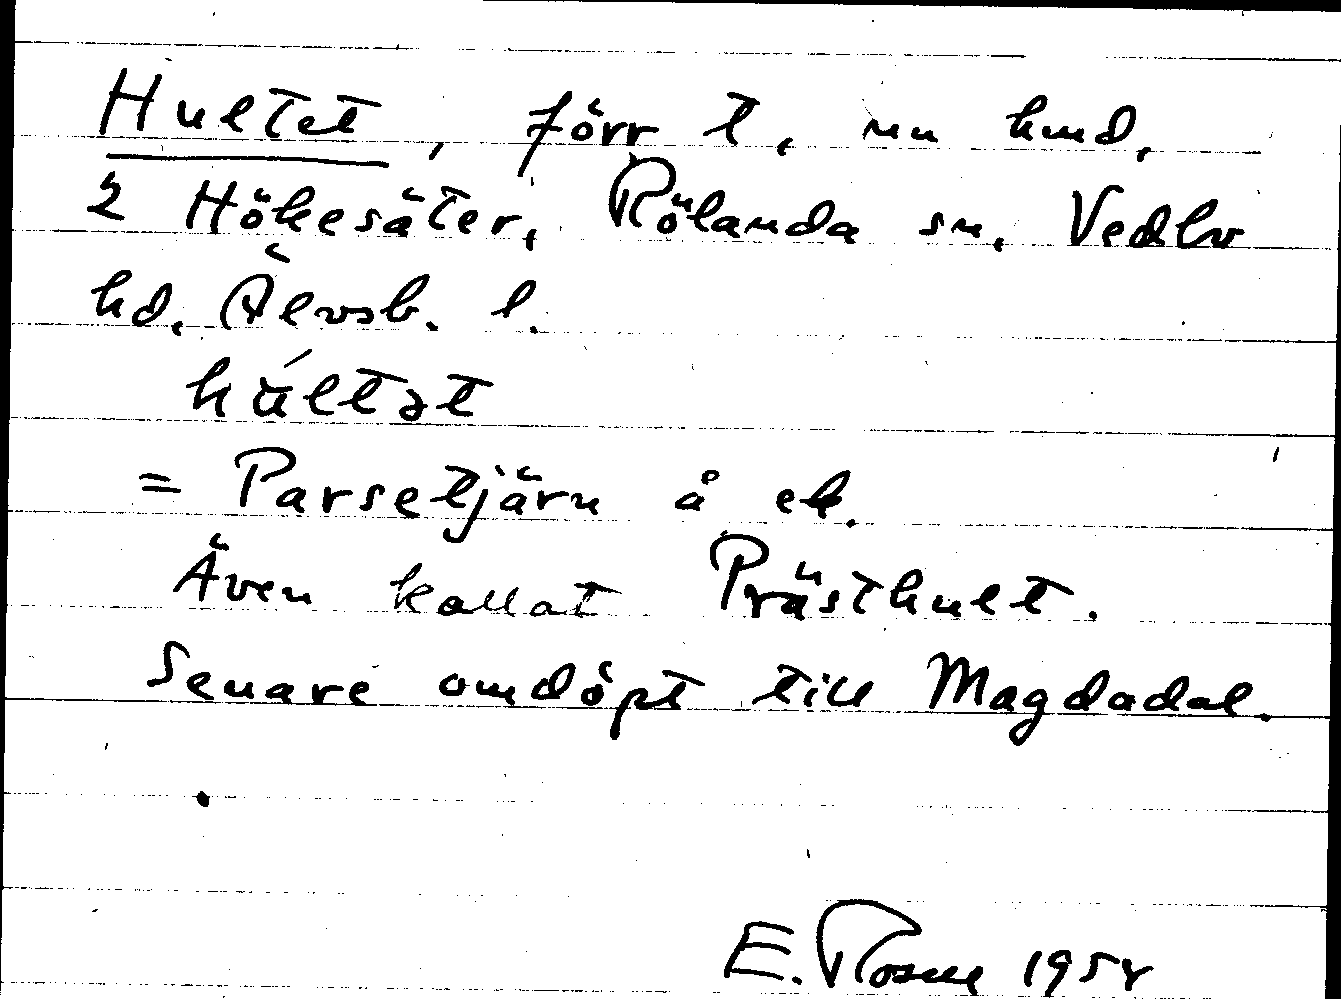 Hultet, förr t, nu hmd,
2 Hökesäter, Rölanda sn, Vedbo
hd. Älvsb. l.
húltət
= Parsetjärn å ek.
Även kallat Prästhult.
Senare omdöpt till Magdadal.
E. Rosell 1954